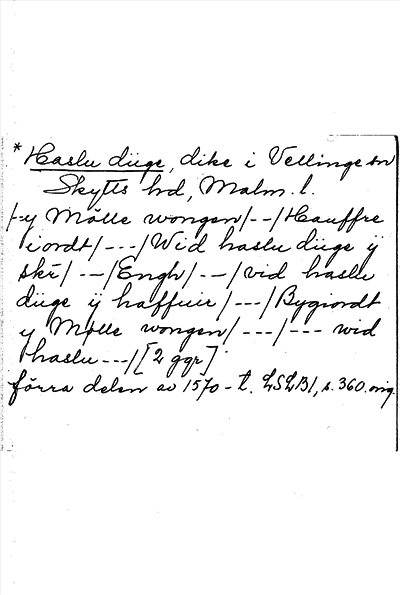 * Haslu diige, dike i Vellinge sn
Skytts hd, Malm. l.
/-y Mölle wongen/--/Hauffre
iordt/---/Wid haslu diige ÿ
skí/--/Engh/--/vid haslu
diige ÿ haffuir/---/Bygiordt
y Mølle wongen/---/--- wid
haslu---/[2 ggr]
förra delen av 1570-t. LSLB1, s. 360. orig.